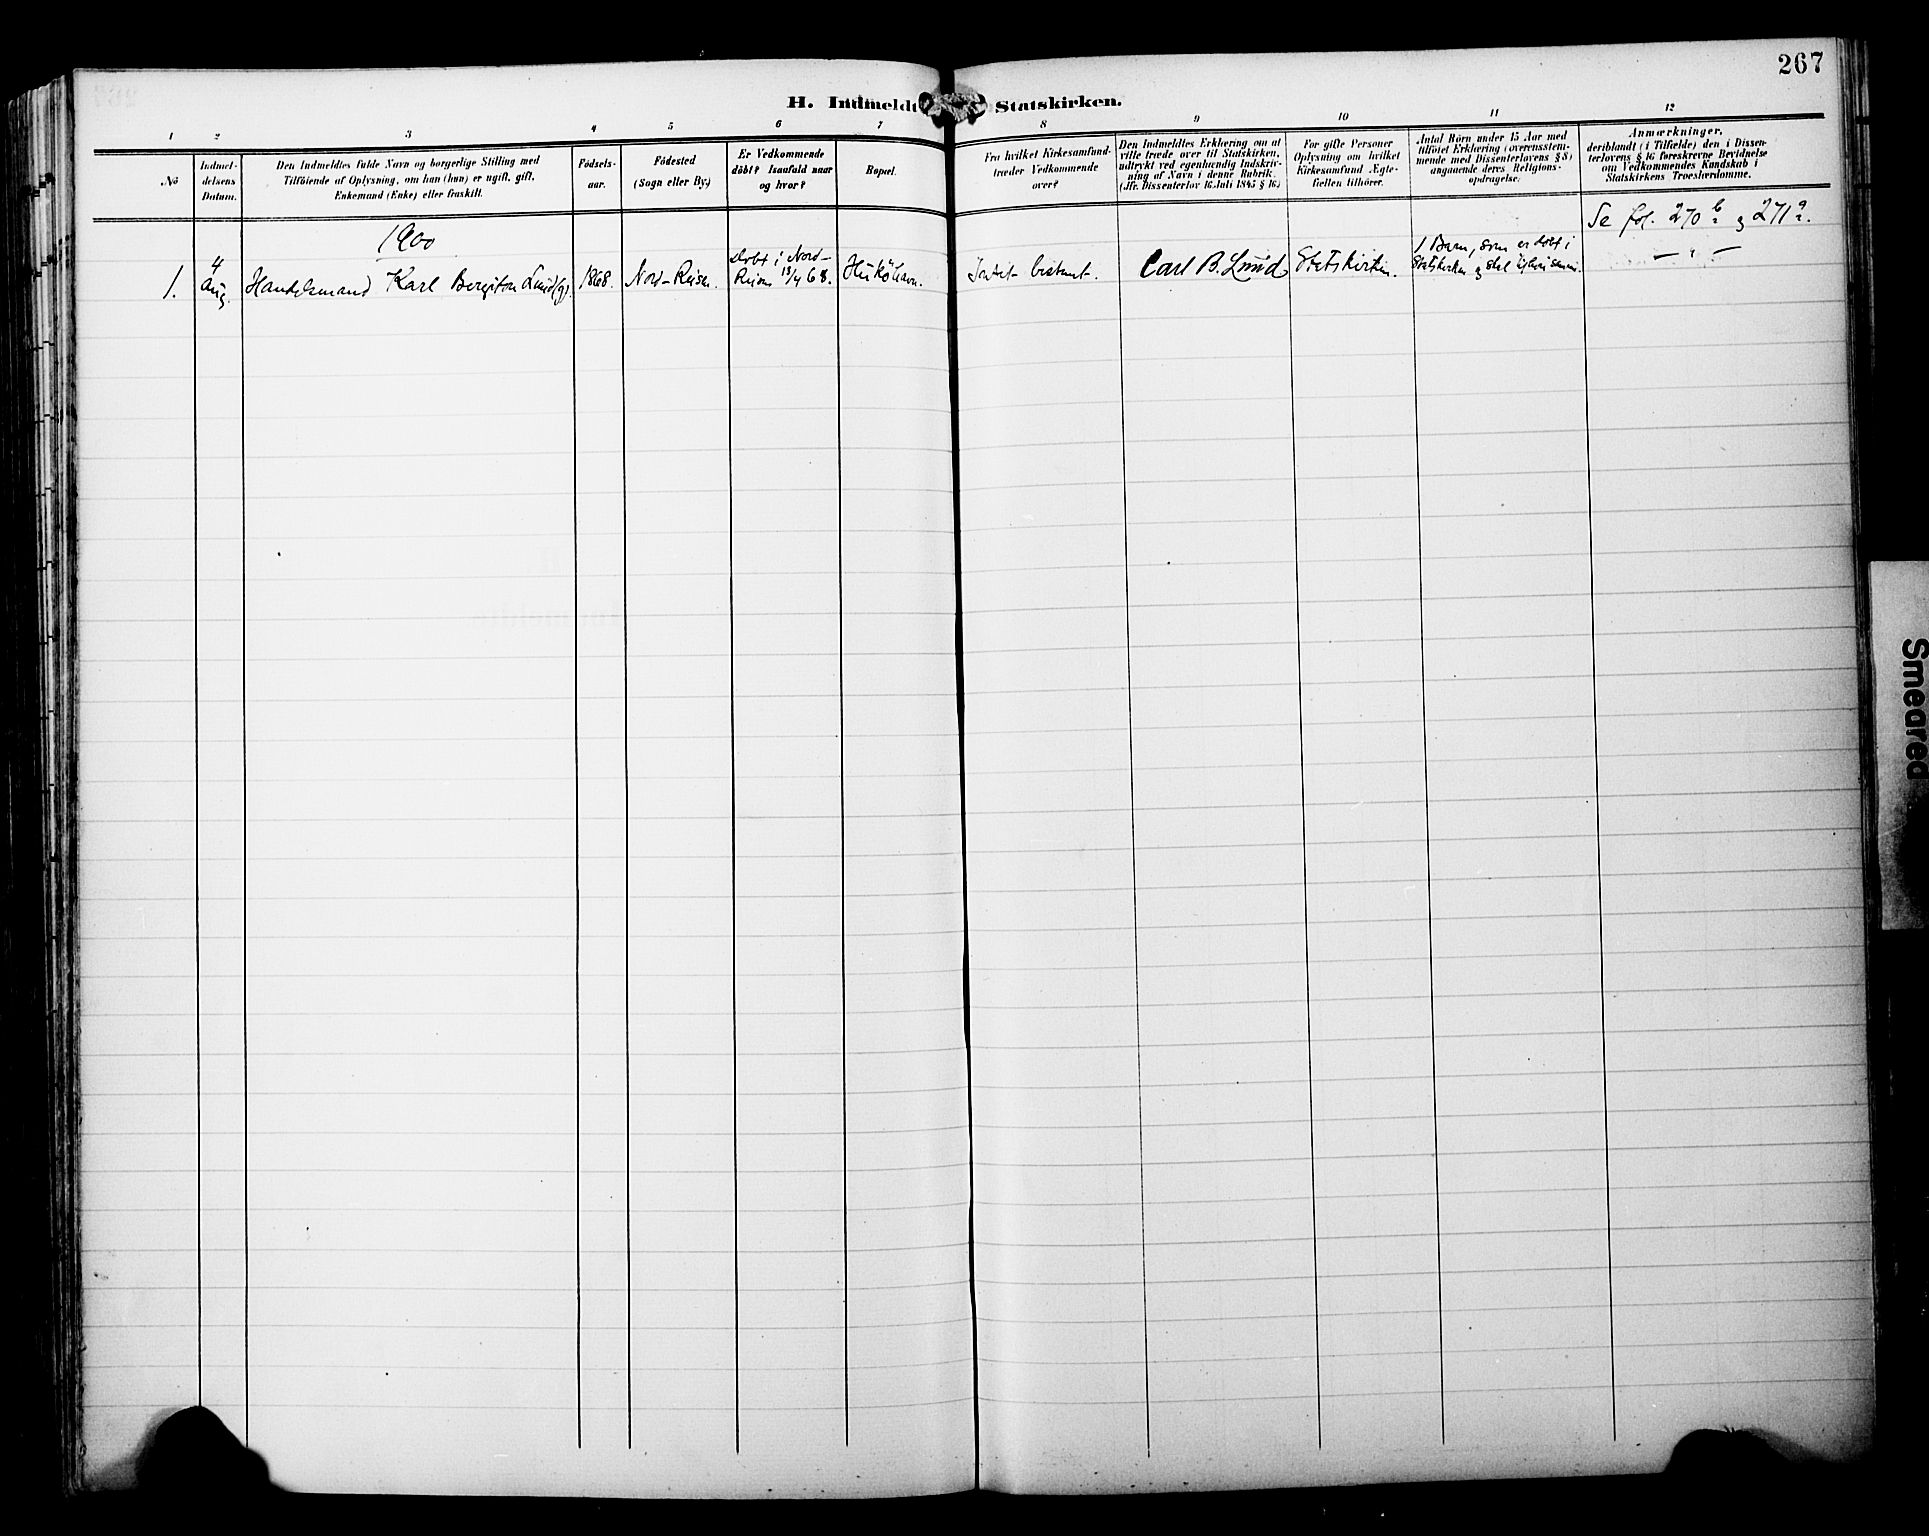 267
H. Indmeldt
Statskirken.
1 2 3 4 5 6 7 8 9 10 11 12
No
Indmel-
delsens
Datum.
Den Indmeldtes fulde Navn og borgerlige Stilling med
Tilföiende af Oplysning, om han (hun) er ugift, gift,
Enkemand (Enke) eller fraskilt.
Födsels-
aar.
Födested
(Sogn eller By.)
Er Vedkommende
döbt? Isaafald naar
og hvor?
Bopæl.
Fra hvilket Kirkesamfund
træder Vedkommende
over?
Den Indmeldtes Erklæring om at
ville træde over til Statskirken,
udtrykt ved egenhændig Indskriv-
ning af Navn i denne Rubrik.
(Jfr. Dissenterlov 16 Juli 1845 § 16.)
For gifte Personer
Oplysning om hvilket
Kirkesamfund Ægte-
fællen tilhörer.
Antal Börn under 15 Aar med
tilföiet Erklæring (overensstem-
mende med Dissenterlovens § 8)
angaaende deres Religions-
opdragelse.
Anmærkninger,
deriblandt (i Tilfælde) den i Dissen-
terlovens § 16 foreskrevne Bevidnelse
om Vedkommendes Kundskab i
Statskirkens Troeslærdomme.
Se fol. 270 b og 271 a.
1900
1.
4
Aug.
Handelsmand Karl Bergiton Lund (g).
1868.
Nord-Reisen.
Döbt i Nord-
Reisen 13/4 68.
Intet bestemt.
Carl B. Lund
Statskirken.
1 Barn, som er döbt i
Statskirken og skal
— " —
Smeared